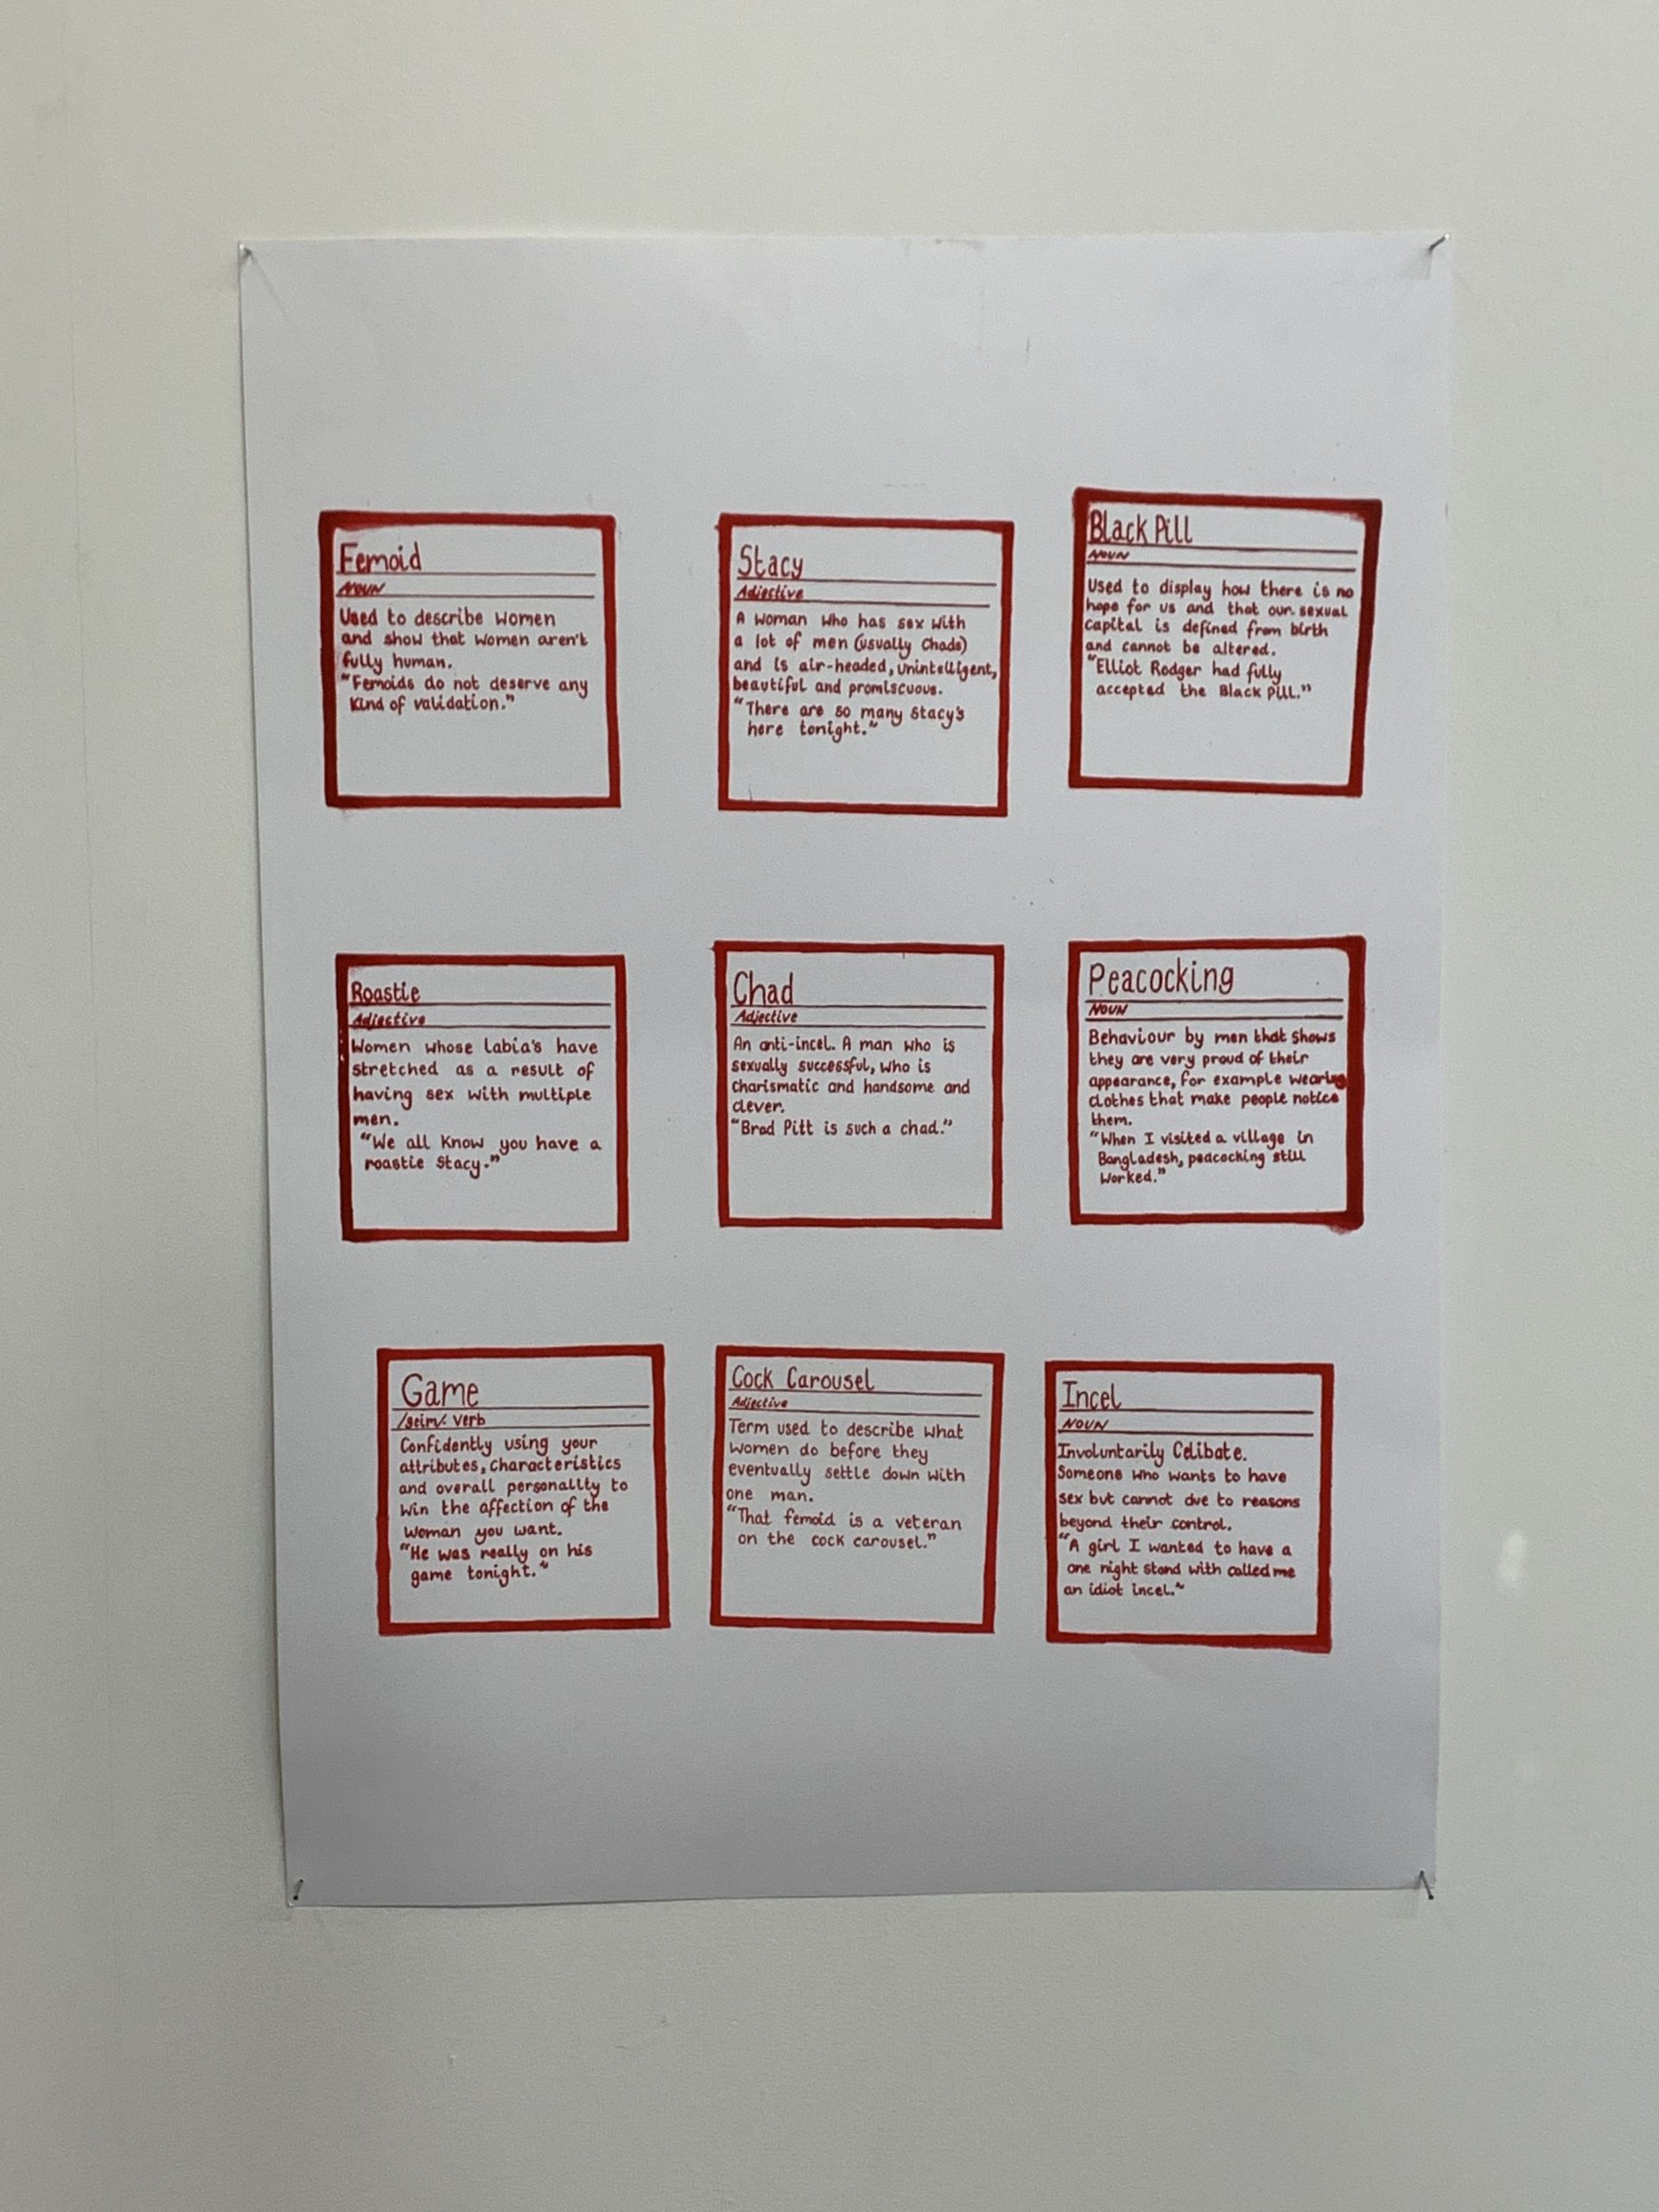 Femoid
NOUN
Used to describe women
and show that women aren't
fully human.
"Femoids do not deserve any
kind of validation."
Stacy
Adjective
A woman who has sex with
a lot of men (usually Chads)
and is air-headed, unintelligent,
beautiful and promiscuous.
"There are so many Stacy's
here tonight."
Black Pill
NOUN
Used to display how there is no
hope for us and that our sexual
capital is defined from birth
and cannot be altered.
"Elliot Rodger had fully
accepted the Black Pill."
Roastie
Adjective
Women whose labia's have
stretched as a result of
having sex with multiple
men.
"We all know you have a
roastie Stacy."
Chad
Adjective
An anti-incel. A man who is
sexually successful, who is
charismatic and handsome and
clever.
"Brad Pitt is such a chad."
Peacocking
NOUN
Behaviour by men that shows
they are very proud of their
appearance, for example wearing
clothes that make people notice
them.
"When I visited a village in
Bangladesh, peacocking still
worked."
Game
/geim/. verb
Confidently using your
attributes, characteristics
and overall personality to
win the affection of the
woman you want.
"He was really on his
game tonight."
Cock Carousel
Adjective
Term used to describe what
women do before they
eventually settle down with
one man.
"That femoid is a veteran
on the cock carousel."
Incel
NOUN
Involuntarily Celibate.
Someone who wants to have
sex but cannot due to reasons
beyond their control.
"A girl I wanted to have a
one night stand with called me
an idiot incel."